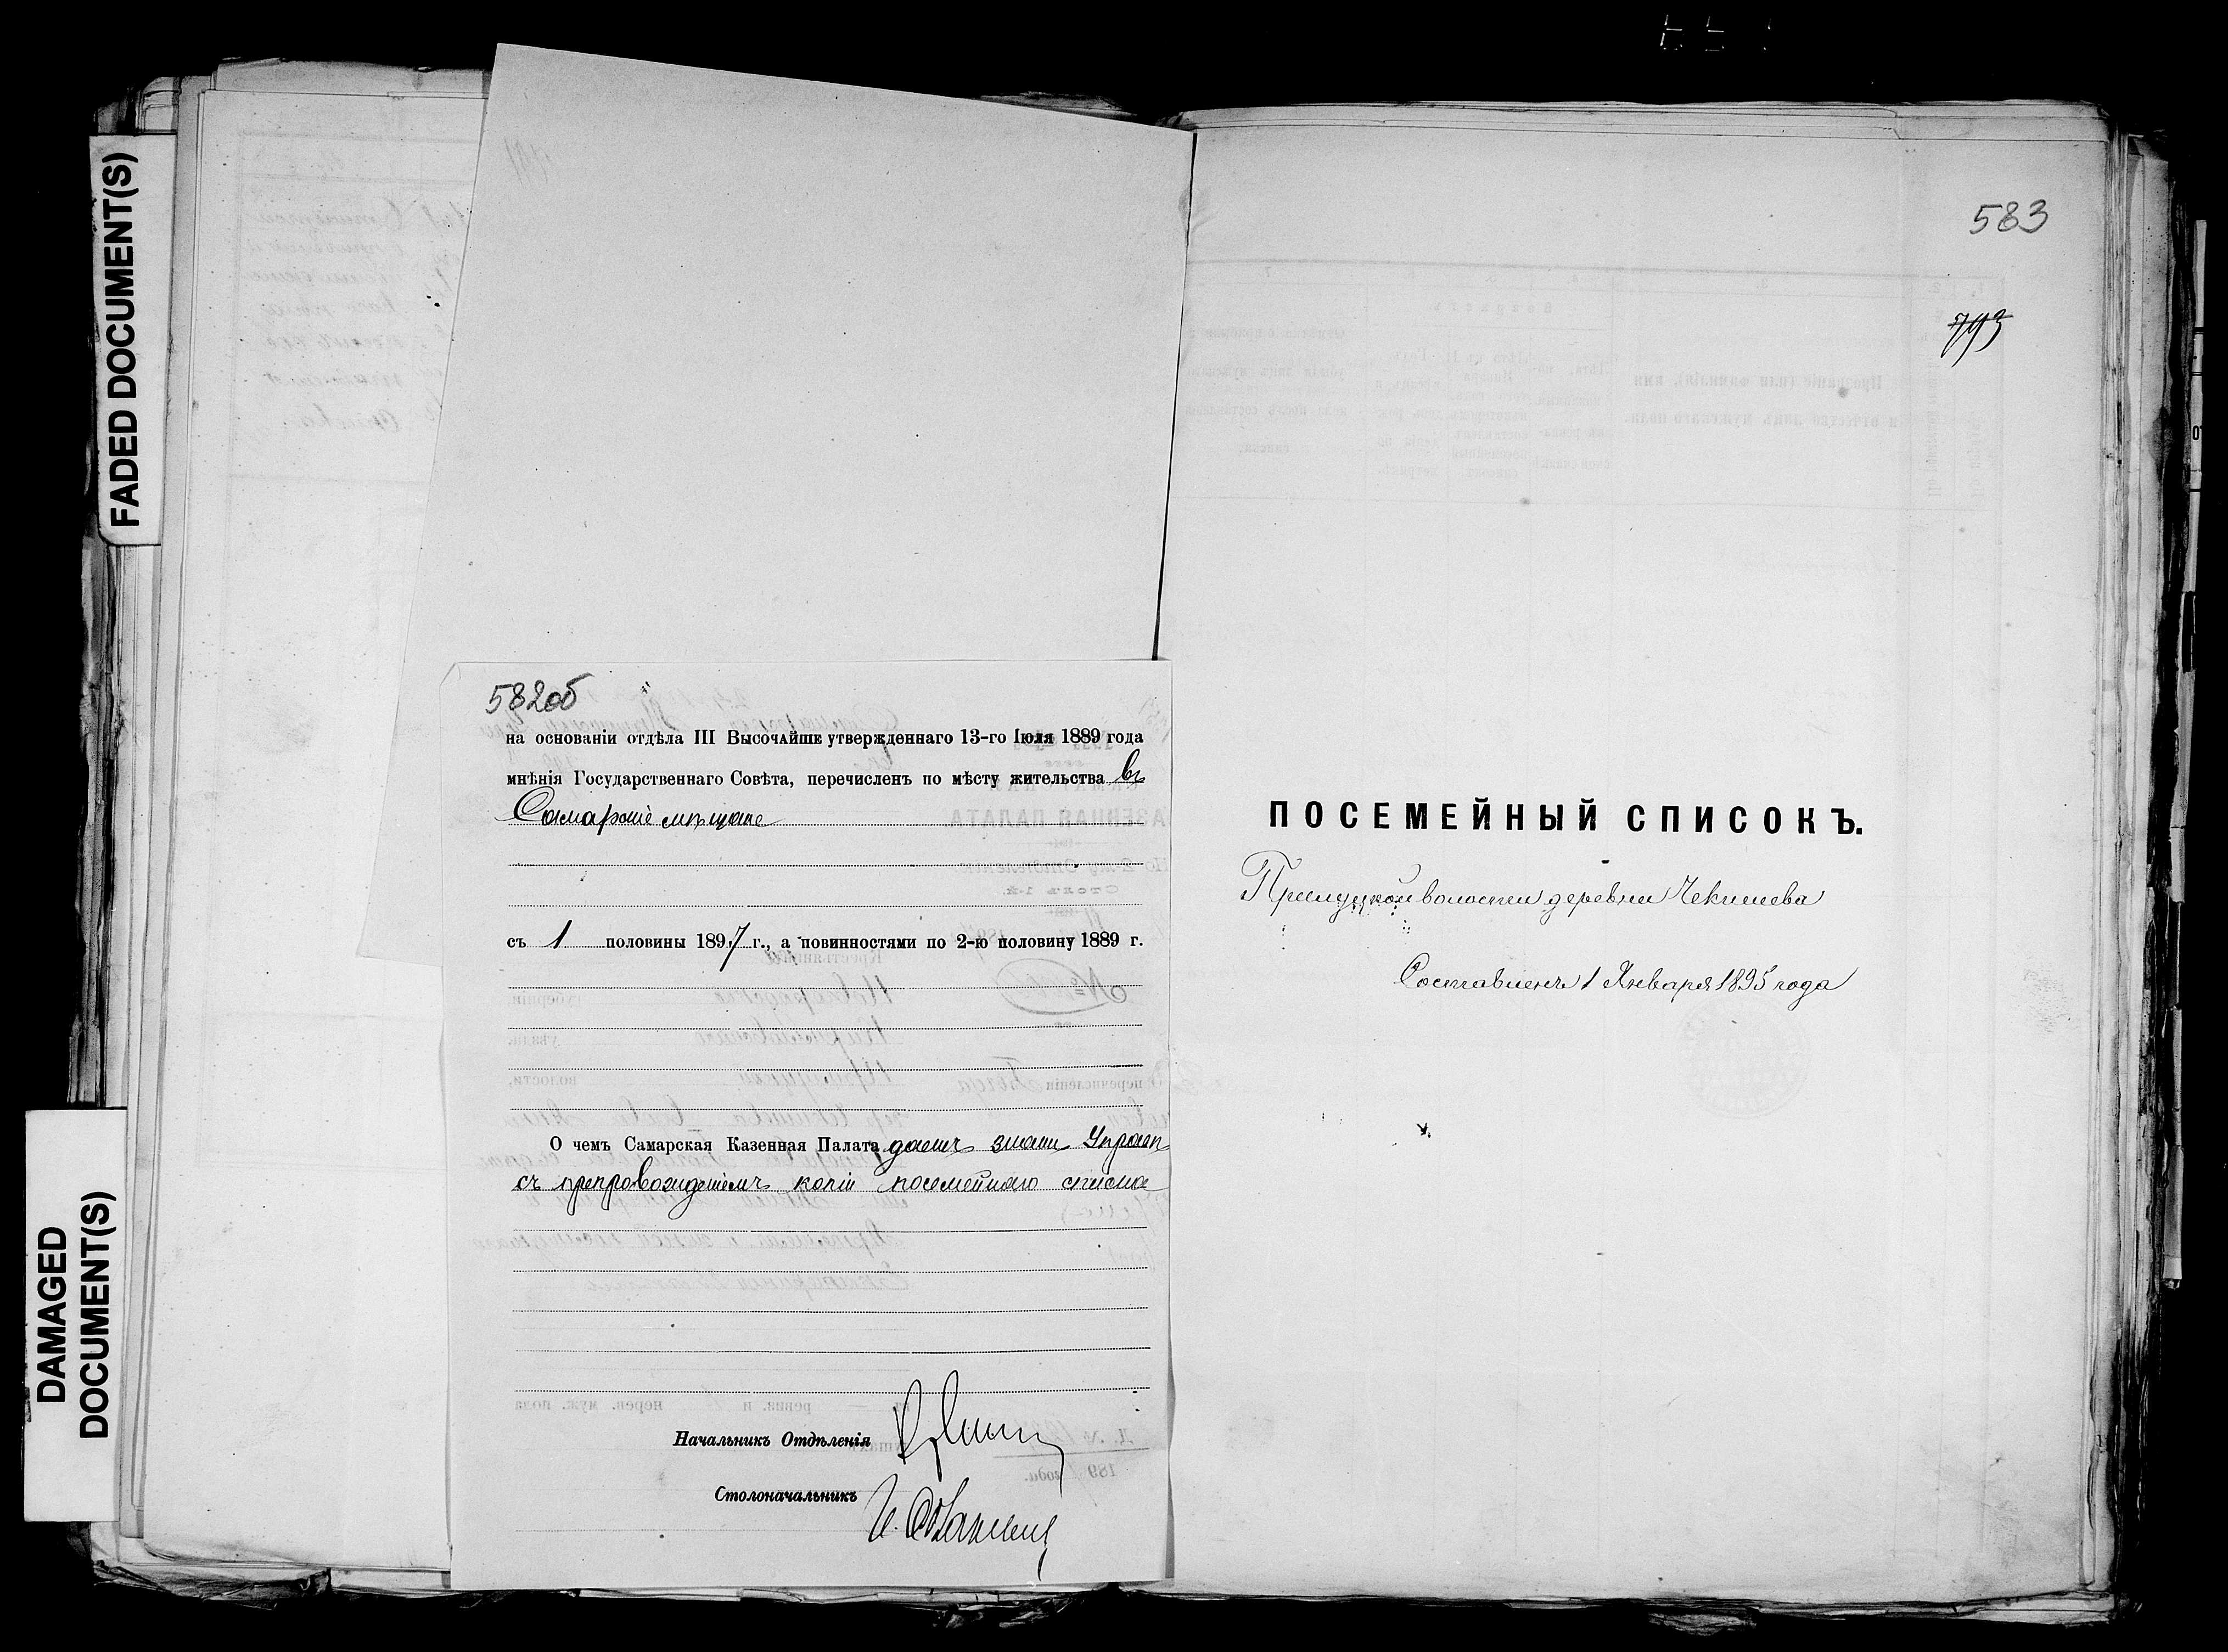 FADED DOCUMENT(S)
DAMAGED
DOCUMENT(S)
582об
на основаніи отдѣла III Высочайше утвержденнаго 13-го Іюля 1889 года
мнѣнія Государственнаго Совѣта, перечисленъ по мѣсту жительства въ
Самарскіе мѣщане
съ 1 половины 1897 г., а повинностями по 2-ю половину 1889 г.
О чемъ Самарская Казенная Палата даетъ знать Управѣ
съ препровожденіемъ копіи посемейнаго списка
Начальникъ Отдѣленія
Столоначальникъ
583
793
ПОСЕМЕЙНЫЙ СПИСОКЪ.
волости деревни Чекшева
Составленъ 1 Января 1895 года